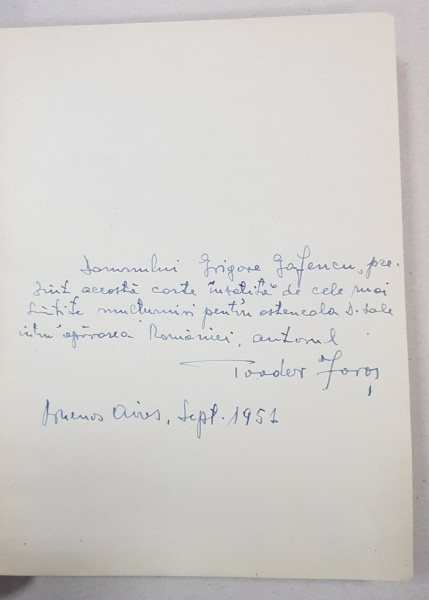 Domnului Grigore Gafencu, pre-
zint această carte însoțită de cele mai
simțite mulțumiri pentru osteneala D-sale
intru apărarea României, autorul
Toader Joroș
Buenos Aires, Sept. 1951